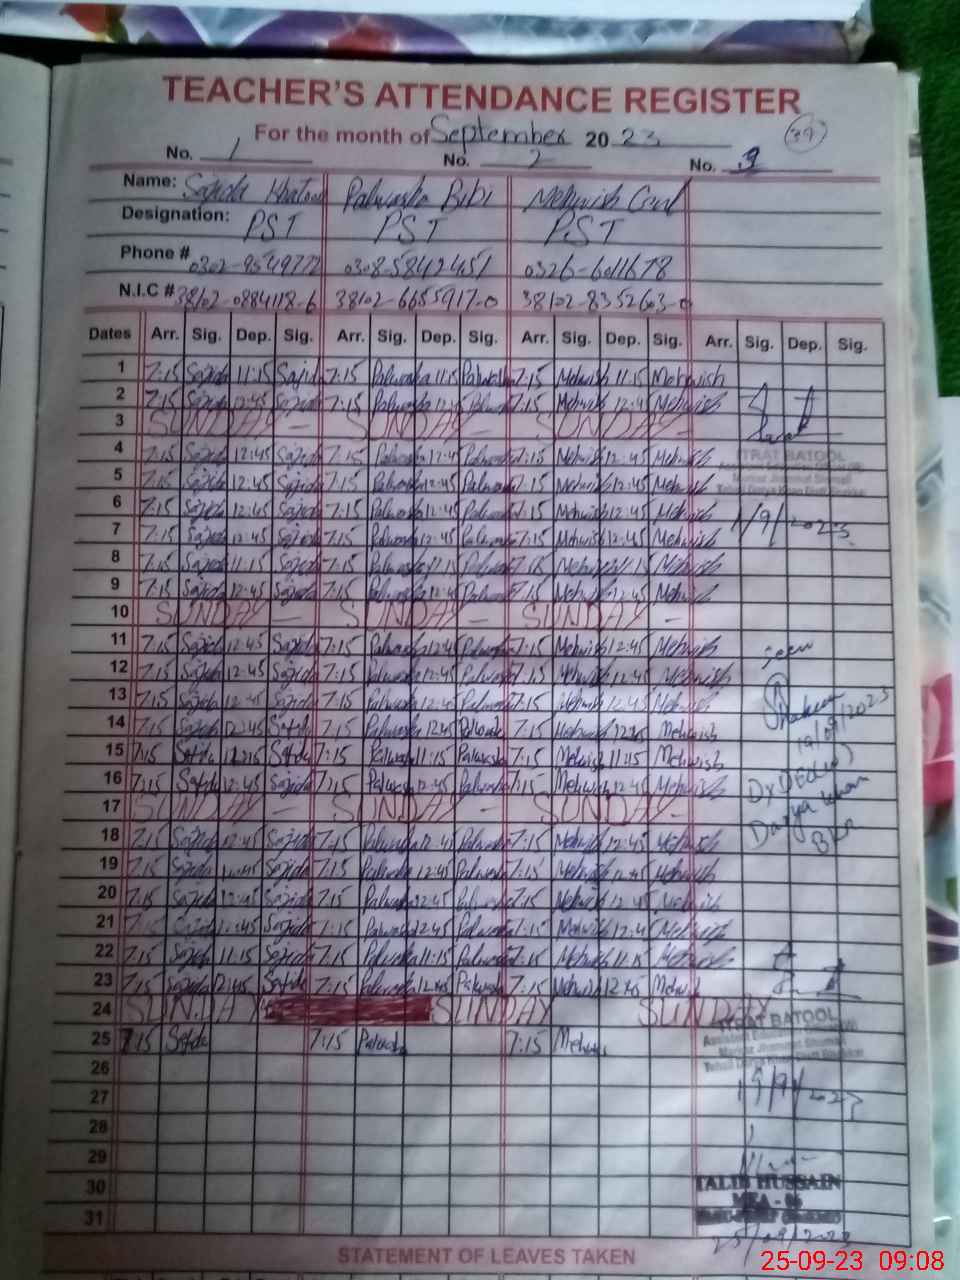 TEACHER'S ATTENDANCE REGISTER
For the month of September 2023
39
No. 1 No. 2 No. 3
Name: Sajida Khatoon Palwasha Bibi Mehwish Gul
Designation: PST PST PST
Phone # 0302-9549772 0308-5842451 0326-6011678
N.I.C # 38102-0884118-6 38102-6655917-0 38102-8352603-0
Dates Arr. Sig. Dep. Sig. Arr. Sig. Dep. Sig. Arr. Sig. Dep. Sig. Arr. Sig. Dep. Sig.
1 7:15 Sajida 11:15 Sajida 7:15 Palwasha 11:15 Palwasha 7:15 Mehwish 11:15 Mehwish
2 7:15 Sajida 12:45 Sajida 7:15 Palwasha 12:45 Palwasha 7:15 Mehwish 12:45 Mehwish
3 SUNDAY - SUNDAY - SUNDAY -
4 7:15 Sajida 12:45 Sajida 7:15 Palwasha 12:45 Palwasha 7:15 Mehwish 12:45 Mehwish
ITRAT BATOOL
5 7:15 Sajida 12:45 Sajida 7:15 Palwasha 12:45 Palwasha 7:15 Mehwish 12:45 Mehwish
6 7:15 Sajida 12:45 Sajida 7:15 Palwasha 12:45 Palwasha 7:15 Mehwish 12:45 Mehwish
7 7:15 Sajida 12:45 Sajida 7:15 Palwasha 12:45 Palwasha 7:15 Mehwish 12:45 Mehwish
1/9/2023
8 7:15 Sajida 11:15 Sajida 7:15 Palwasha 11:15 Palwasha 7:15 Mehwish 11:15 Mehwish
9 7:15 Sajida 12:45 Sajida 7:15 Palwasha 12:45 Palwasha 7:15 Mehwish 12:45 Mehwish
10 SUNDAY - SUNDAY - SUNDAY -
11 7:15 Sajida 12:45 Sajida 7:15 Palwasha 12:45 Palwasha 7:15 Mehwish 12:45 Mehwish
12 7:15 Sajida 12:45 Sajida 7:15 Palwasha 12:45 Palwasha 7:15 Mehwish 12:45 Mehwish
13 7:15 Sajida 12:45 Sajida 7:15 Palwasha 12:45 Palwasha 7:15 Mehwish 12:45 Mehwish
14 7:15 Sajida 12:45 Sajida 7:15 Palwasha 12:45 Palwasha 7:15 Mehwish 12:45 Mehwish
15 7:15 Sajida 11:15 Sajida 7:15 Palwasha 11:15 Palwasha 7:15 Mehwish 11:15 Mehwish
16 7:15 Sajida 12:45 Sajida 7:15 Palwasha 12:45 Palwasha 7:15 Mehwish 12:45 Mehwish
17 SUNDAY - SUNDAY - SUNDAY -
Darya Khan
18 7:15 Sajida 12:45 Sajida 7:15 Palwasha 12:45 Palwasha 7:15 Mehwish 12:45 Mehwish
19 7:15 Sajida 12:45 Sajida 7:15 Palwasha 12:45 Palwasha 7:15 Mehwish 12:45 Mehwish
20 7:15 Sajida 12:45 Sajida 7:15 Palwasha 12:45 Palwasha 7:15 Mehwish 12:45 Mehwish
21 7:15 Sajida 12:45 Sajida 7:15 Palwasha 12:45 Palwasha 7:15 Mehwish 12:45 Mehwish
22 7:15 Sajida 11:15 Sajida 7:15 Palwasha 11:15 Palwasha 7:15 Mehwish 11:15 Mehwish
23 7:15 Sajida 12:45 Sajida 7:15 Palwasha 12:45 Palwasha 7:15 Mehwish 12:45 Mehwish
24 SUNDAY SUNDAY SUNDAY
ITRAT BATOOL
25 7:15 Sajida 7:15 Palwasha 7:15 Mehwish
26
27
19/9/2023
28
29
30
TALIB HUSSAIN
MEA - 06
31
25/09/2023
STATEMENT OF LEAVES TAKEN
25-09-23 09:08